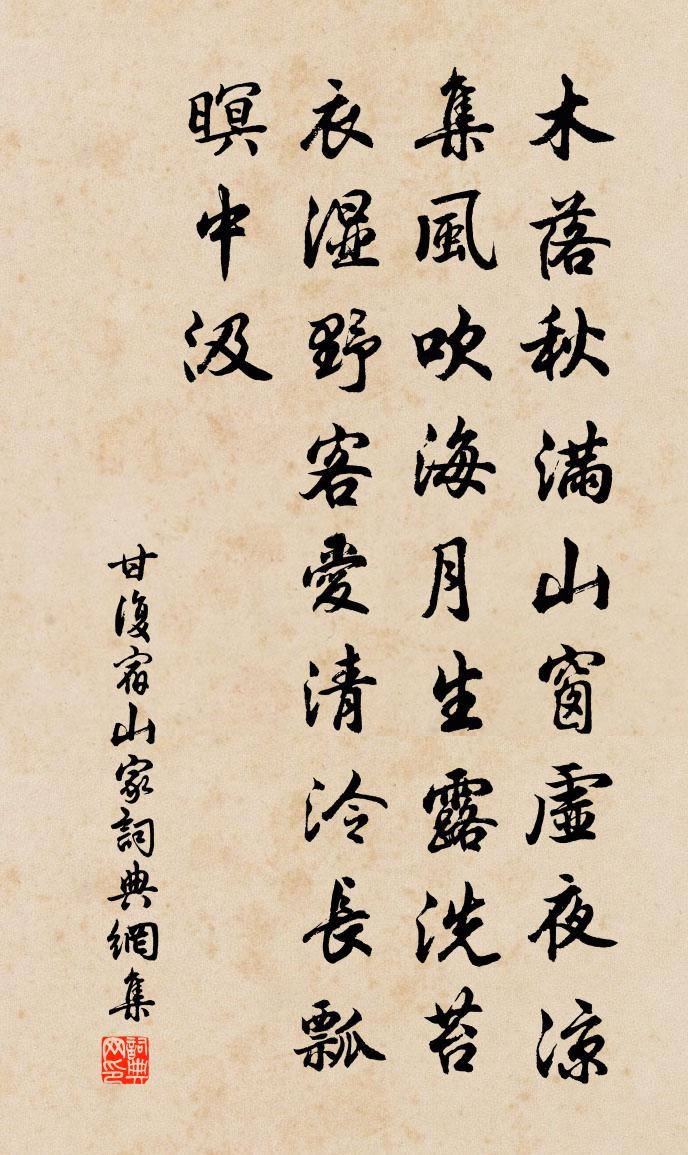 木落秋滿山窗虛夜涼
集風吹海月生露洗苔
衣湿野客愛清泠長瓢
暝中汲
甘復宿山家詞典網集
詞典网印